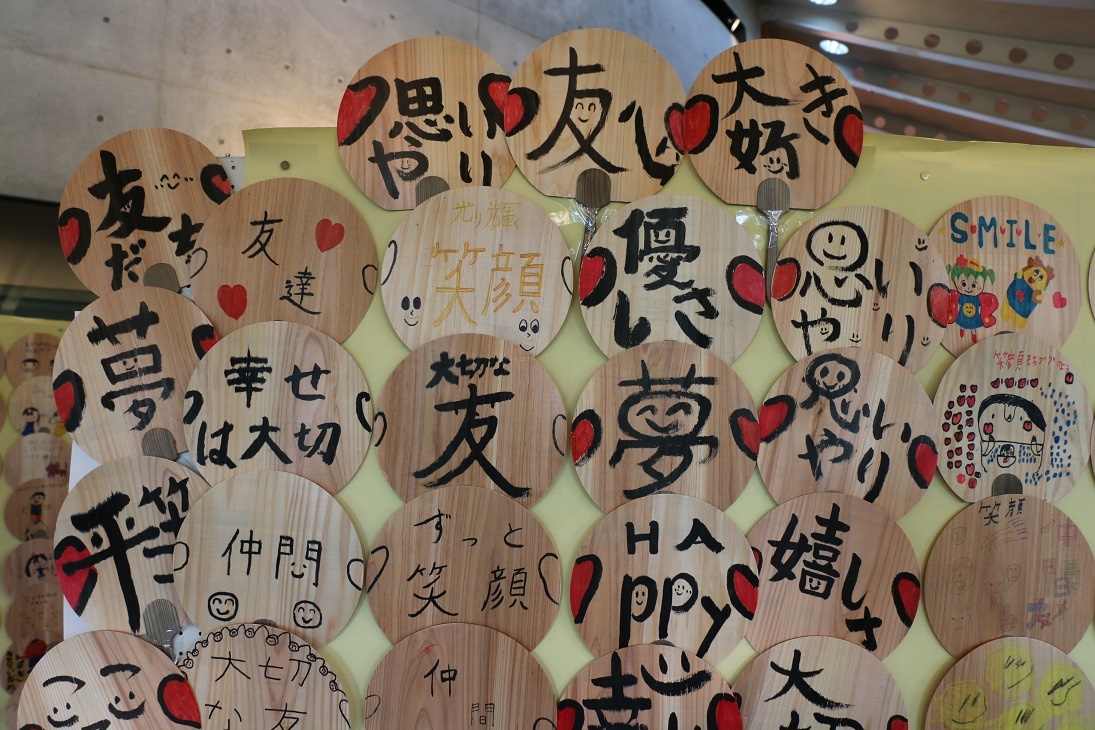 思いやり
友
大好き
友だち
友達
光り輝く
笑顔
優しさ
思いやり
SMILE
夢
幸せ
は大切
大切な
友
夢
思いやり
仲間
ずっと
笑顔
HA
ppy
嬉しさ
笑顔
大切
な友
仲間
大